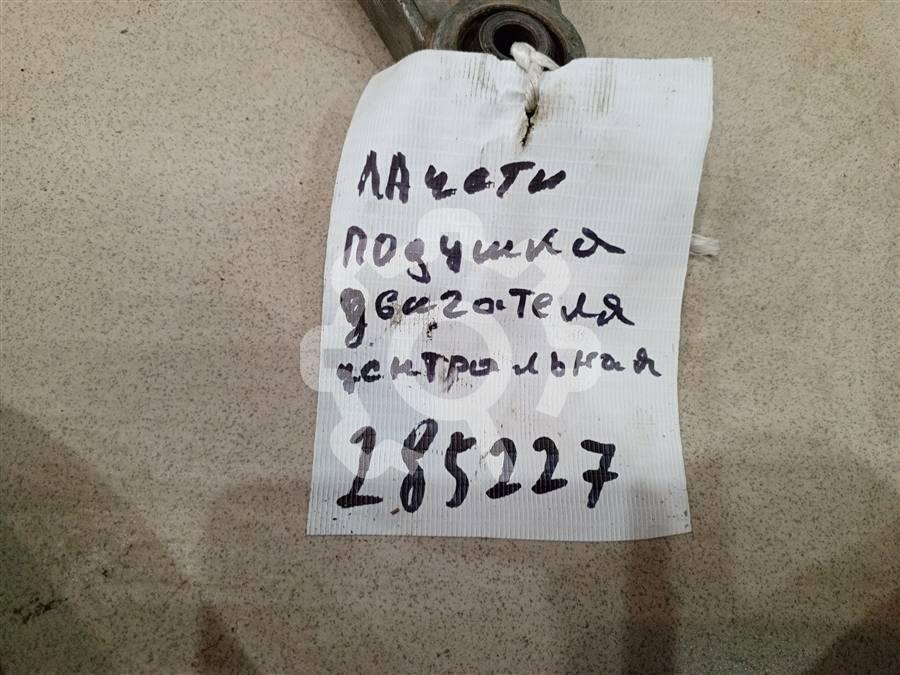 Лачети
подушка
двигателя
центральная
285227